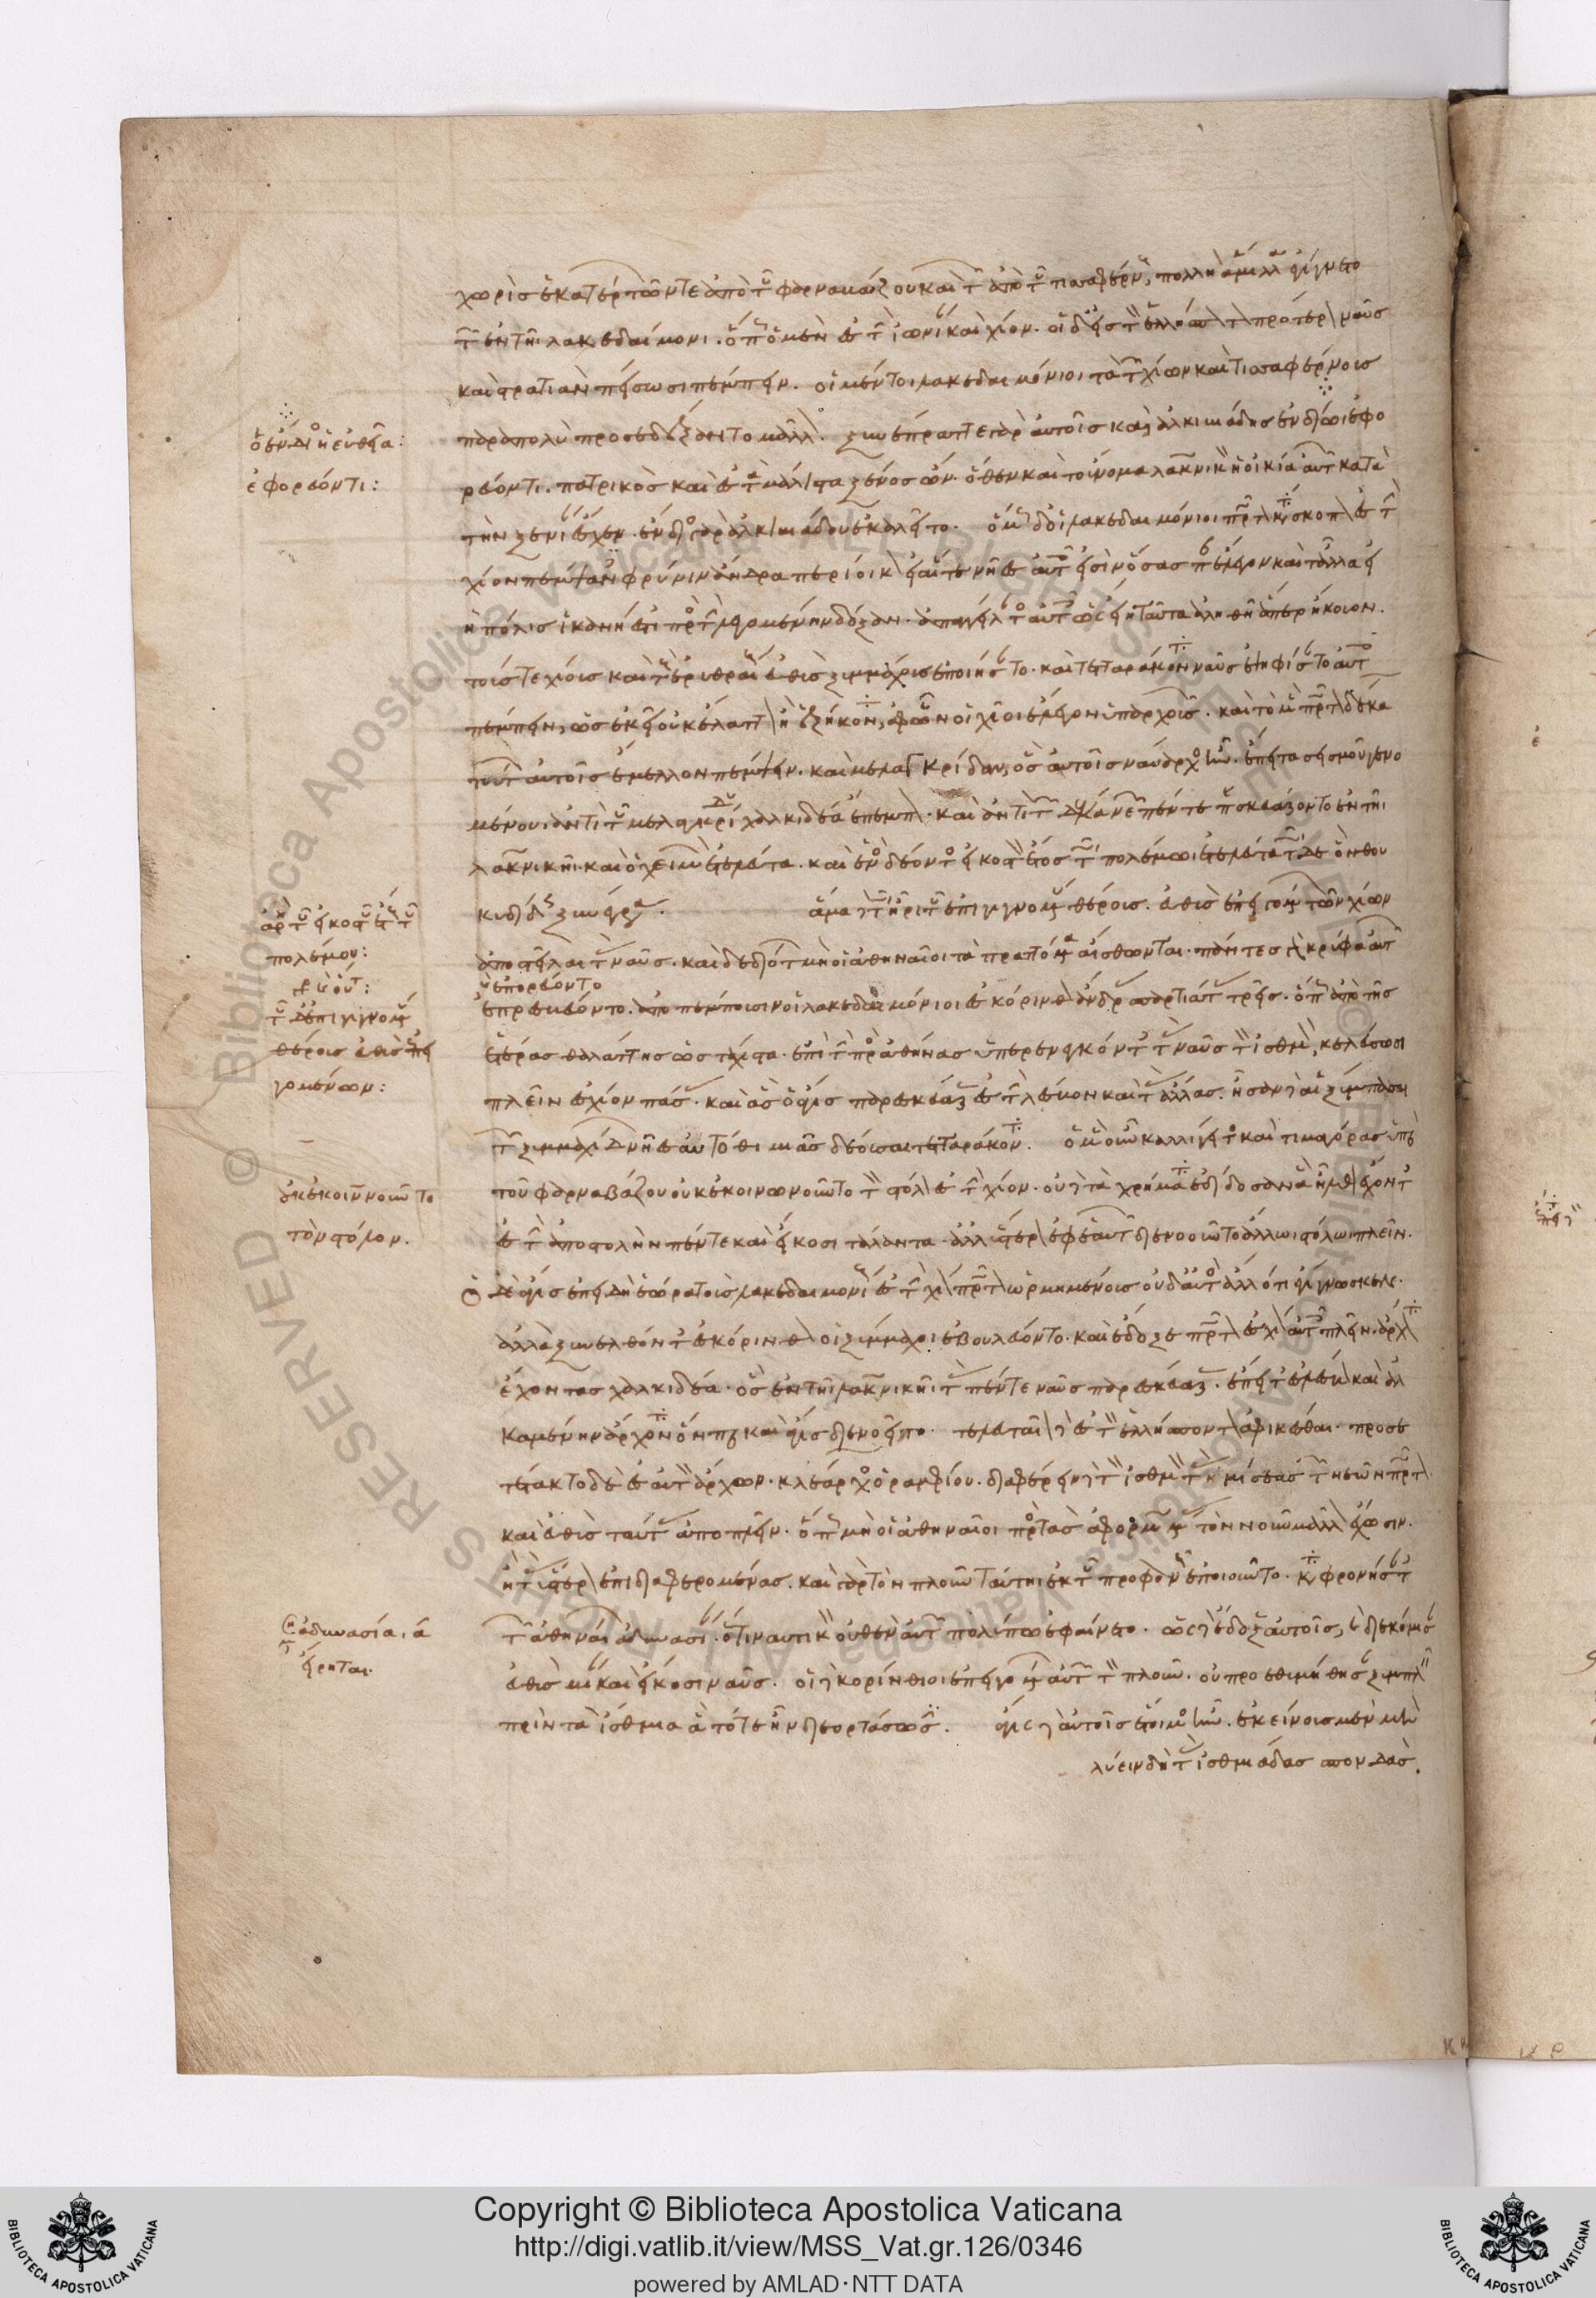 χωρὶς ἑκατέρων τῶν τε ἀπὸ τοῦ φαρναβάζου καὶ τῶν ἀπὸ τοῦ τισσαφέρνους, πολλὴ ἅμιλλα ἐγίγνετο
τῶν ἐν τῆι λακεδαίμονι. ὅπως οἱ μὲν ἐς τὴν ἰωνίαν καὶ χίον. οἱ δ' ἐς τὸν ἑλλήσποντον πρότερον ναῦς
καὶ στρατιὰν πείσωσι πέμπειν. οἱ μέντοι λακεδαιμόνιοι τὰ τῶν χίων καὶ τισσαφέρνους
παραπολὺ προσεδέξαντο μᾶλλον. ξυνέπραττε γὰρ αὐτοῖς καὶ ἀλκιβιάδης ἐνδίωι ἐφο
ρεύοντι. πατρικὸς καὶ ἐς τὰ μάλιστα ξένος ὤν. ὅθεν καὶ τοὔνομα λακωνικὸν ἡ οἰκία αὐτῶν κατὰ
τὴν ξενίαν ἔσχεν. ἔνδιος γὰρ ἀλκιβιάδου ἐκαλεῖτο. ὅμως δ' οἱ λακεδαιμόνιοι πρῶτον κατάσκοπον ἐς τὴν
χίον πέμψαντες φρύνιν ἄνδρα περίοικον εἰ αἵ τε νῆες αὐτοῖς εἰσὶν ὅσασπερ ἔλεγον καὶ τἄλλα εἰ
ἡ πόλις ἱκανή ἐστι πρὸς τὴν λεγομένην δόξαν. ἀπαγγείλαντος αὐτοῖς ὡς εἴη ταῦτα ἀληθῆ ἅπερ ἤκουον.
τούς τε χίους καὶ τοὺς ἐρυθραίους εὐθὺς ξυμμάχους ἐποιήσαντο. καὶ τετταράκοντα ναῦς ἐψηφίσαντο αὐτοῖς
πέμπειν, ὡς ἐκεῖ οὐκ ἔλαττον ἢ ἑξήκοντα, ἀφ' ὧν οἱ χῖοι ἔλεγον ὑπαρχουσῶν. καὶ τὸ μὲν πρῶτον δέκα
τούτων αὐτοῖς ἔμελλον πέμψειν. καὶ μελαγκρίδαν, ὃς αὐτοῖς ναύαρχος ἦν. ἔπειτα σεισμοῦ γενο
μένου ἀντὶ τοῦ μελαγκρίδου χαλκιδέα ἔπεμπον. καὶ ἀντὶ τῶν δέκα νεῶν πέντε παρεσκευάζοντο ἐν τῆι
λακωνικῆι. καὶ ὁ χειμὼν ἐτελεύτα. καὶ ἑνὸς δέοντος εἰκοστὸν ἔτος τῶι πολέμωι ἐτελεύτα τῶιδε ὃν θου
κυδίδης ξυνέγραψεν. ἅμα δὲ τῶι ἦρι τοῦ ἐπιγιγνομένου θέρους. εὐθὺς ἐπειγομένων τῶν χίων
ἀποστεῖλαι τὰς ναῦς. καὶ δεδιότων μὴ οἱ ἀθηναῖοι τὰ πραττόμενα αἴσθωνται. πάντες γὰρ κρύφα αὐτῶν
ἐπρεσβεύοντο. ἀποπέμπουσιν οἱ λακεδαιμόνιοι ἐς κόρινθον ἄνδρας σπαρτιάτας τρεῖς. ὅπως ἀπὸ τῆς
ἑτέρας θαλάττης ὡς τάχιστα ἐπὶ τὴν πρὸς ἀθήνας ὑπερενεγκόντες τὰς ναῦς τὸν ἰσθμὸν, κελεύσωσι
πλεῖν ἐς χίον πάσας. καὶ ἃς ὁ ἆγις παρεσκεύαζεν ἐς τὴν λέσβον καὶ τὰς ἄλλας. ἦσαν δὲ αἱ ξύμπασαι
τῶν ξυμμαχίδων νῆες αὐτόθι μιᾶς δέουσαι τετταράκοντα. ὁ μὲν οὖν καλλίγειτος καὶ τιμαγόρας ὑπὲρ
τοῦ φαρναβάζου οὐκ ἐκοινωνοῦντο τὸν στόλον ἐς τὴν χίον. οὐδὲ τὰ χρήματα ἐδίδοσαν ἃ ἦλθον ἔχοντες
ἐς τὴν ἀποστολὴν πέντε καὶ εἴκοσι τάλαντα. ἀλλ' ὕστερον ἐφ' ἑαυτῶν διενοοῦντο ἄλλωι στόλωι πλεῖν.
ὁ δὲ ἆγις ἐπειδὴ ἑώρα τοὺς λακεδαιμονίους ἐς τὴν χίον πρῶτον ὡρμημένους οὐδ' αὐτὸς ἄλλο τι ἐγίγνωσκεν.
ἀλλὰ ξυνελθόντες ἐς κόρινθον οἱ ξύμμαχοι ἐβουλεύοντο. καὶ ἔδοξε πρῶτον ἐς χίον αὐτοὺς πλεῖν. ἄρχοντα
ἔχοντας χαλκιδέα. ὃς ἐν τῆι λακωνικῆι τὰς πέντε ναῦς παρεσκεύαζεν. ἔπειτα ἐς λέσβον καὶ ἀλ
καμένην ἄρχοντα. ὅνπερ καὶ ἆγις διενοεῖτο. τελευταῖον δὲ ἐς τὸν ἑλλήσποντον ἀφικέσθαι. προσε
τέτακτο δὲ ἐς αὐτὸν ἄρχων. κλέαρχος ὁ ῥαμφίου. διαφέρειν δὲ τὸν ἰσθμὸν τὰς ἡμισέας τῶν νεῶν πρῶτον
καὶ εὐθὺς ταύτας ἀποπλεῖν. ὅπως μὴ οἱ ἀθηναῖοι πρὸς τὰς ἀφορμωμένας τὸν νοῦν μᾶλλον ἔχωσιν.
ἢ τὰς ὕστερον ἐπιδιαφερομένας. καὶ γὰρ τὸν πλοῦν ταύτηι ἐκ τοῦ προφανοῦς ἐποιοῦντο. καταφρονήσαντες
τῶν ἀθηναίων ἀδυνασίαν. ὅτι ναυτικὸν οὐθὲν αὐτῶν πολύ πω ἐφαίνετο. ὡς δὲ ἔδοξεν αὐτοῖς, διεκόμισαν
εὐθὺς μίαν καὶ εἴκοσι ναῦς. οἱ δὲ κορίνθιοι ἐπειγομένων αὐτῶν τὸν πλοῦν. οὐ προεθυμήθησαν ξυμπλεῖν
πρὶν τὰ ἴσθμια ἃ τότε ἦν διεορτάσωσιν. ἆγις δὲ αὐτοῖς ἕτοιμος ἦν. ἐκείνους μὲν μὴ
λύειν δὴ τὰς ἰσθμιάδας σπονδάς.
ἐφορεύοντι:
πολέμου:
τοῦ ἐπιγιγνομένου
θέρους εὐθὺς ἐπει
γομένων:
οὐκ ἐκοινωνοῦντο
τὸν στόλον.
ἀδυνασία
εἴρηται.
Copyright © Biblioteca Apostolica Vaticana
http://digi.vatlib.it/view/MSS_Vat.gr.126/0346
powered by AMLAD·NTT DATA